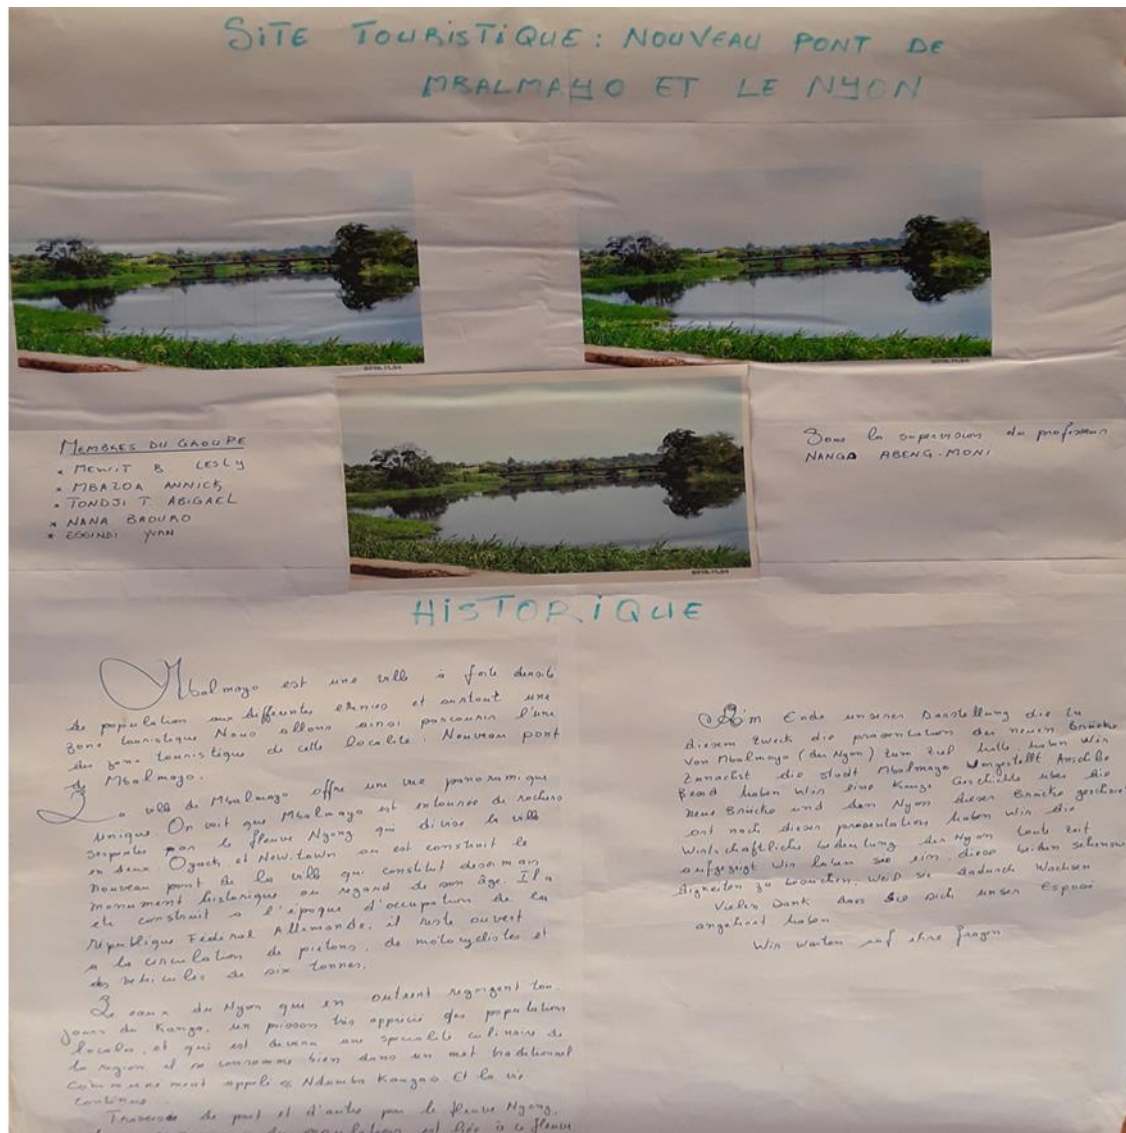 SITE TOURISTIQUE: NOUVEAU PONT DE
MBALMAYO ET LE NYON
MEMBRES DU GROUPE
* MEWIT B LESLY
* MBAZOA ANNICK
* TONDJI T. ABIGAEL
* NANA BAOURO
* EGGINDI YVAN
Sous la supervision du professeur
NANGA ABENG-MONI
HISTORIQUE
Mbalmayo est une ville à forte densité
de population aux differentes ethnies et surtout une
zone touristique Nous allons ainsi parcourir l'une
des zone touristique de cette localité: Nouveau pont
de Mbalmayo.
La ville de Mbalmayo offre une vue panoramique
unique. On voit que Mbalmayo est entourée de rochers
serpentés par le fleuve Nyong qui divise la ville
en deux. Oyack et New-town ou est construit le
nouveau pont de la ville qui constitut desormais
monument historique au regard de son âge. Il a
été construit a l'époque d'occupation de la
république Fédéral Allemande; il reste ouvert
a la circulation de pietons, de motocyclistes et
des vehicules de six tonnes.
Le eaux du Nyon qui en outrent regorgent tou-
jours du Kanga, un poisson très apprécié des populations
locales, et qui est devenu une specialité culinaire de
la region il se consomme bien dans un met traditionnel
communement appelé « Ndomba Kanga» Et la vie
continue...
Traversée de part et d'autre par le fleuve Nyong,
populations est liée à ce fleuve
Am Ende unserer Darstellung die zu
diesem Zweck die präsentation der neuen Brücke
von Mbalmayo (der Nyon) zum Ziel hatte, haben Wir
zunächst die stadt Mbalmayo Vorgestellt Anschlie
ßend haben Wir eine Kurze Geschichte über die
neue Brücke und den Nyon dieser Brücke
nach dieser präsentation haben Wir die
Wirtschaftliche bedeutung der Nyon
aufgezeigt Wir laden sie ein, diese beiden
zu besuchen, Weiß sie dadurch Wachsen
Vielen Dank dass Sie sich unser Esposé
angehört haben
Wir warten auf ihre fragen